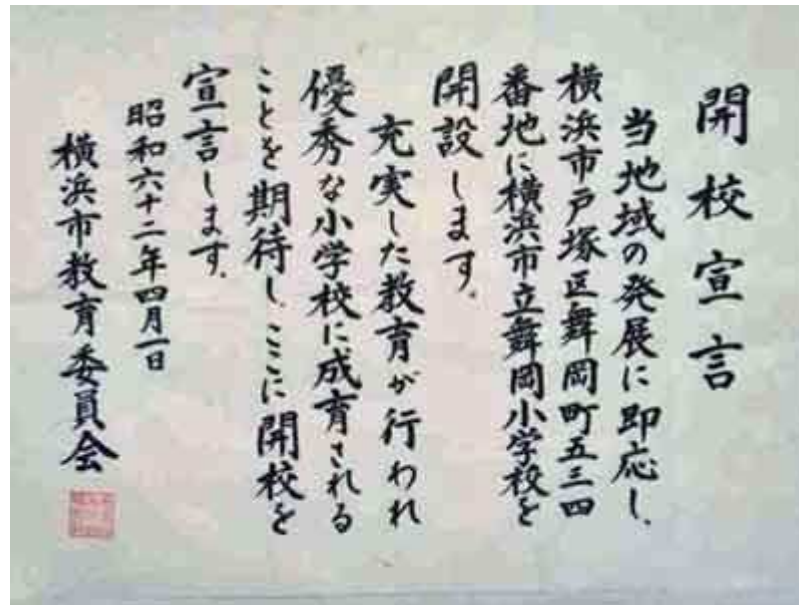 開校宣言
当地域の発展に即応し、
横浜市戸塚区舞岡町五三四
番地に横浜市立舞岡小学校を
開設します。
充実した教育が行われ
優秀な小学校に成育される
ことを期待し、ここに開校を
宣言します。
昭和六十二年四月一日
横浜市教育委員会